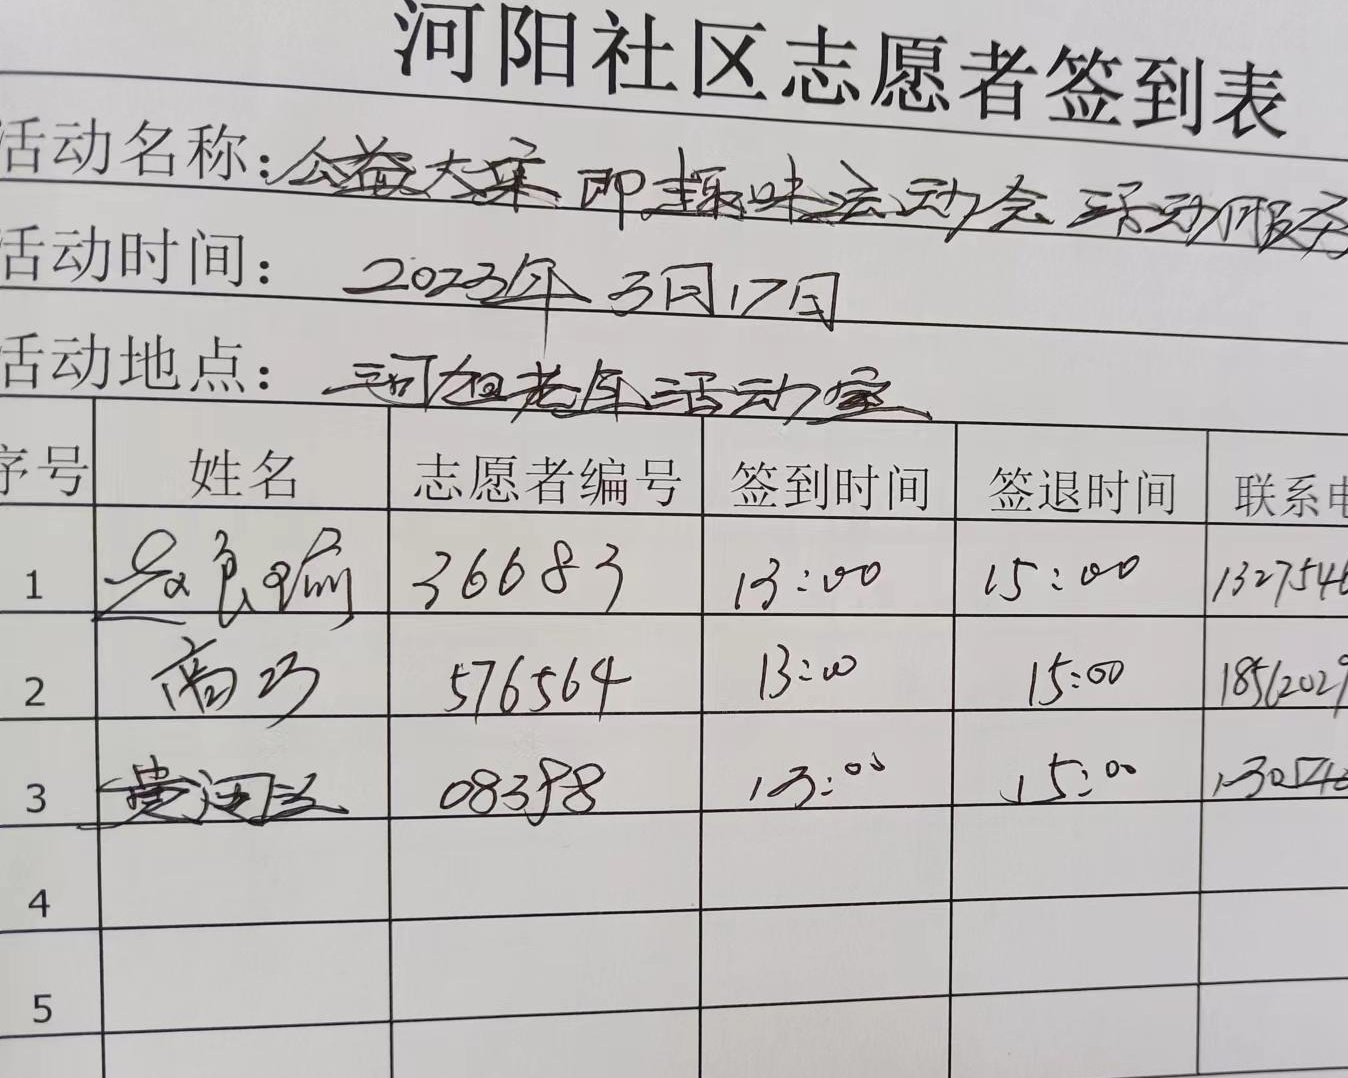 河阳社区志愿者签到表
活动名称：公益大集 即趣味运动会 活动服务
活动时间： 2023年 3月17日
活动地点： 河阳老年活动室
序号 姓名 志愿者编号 签到时间 签退时间 联系电
1 36683 13:00 15:00 1327546
2 高巧 576564 13:00 15:00 18562029
3 08398 13:00 15:00
4
5